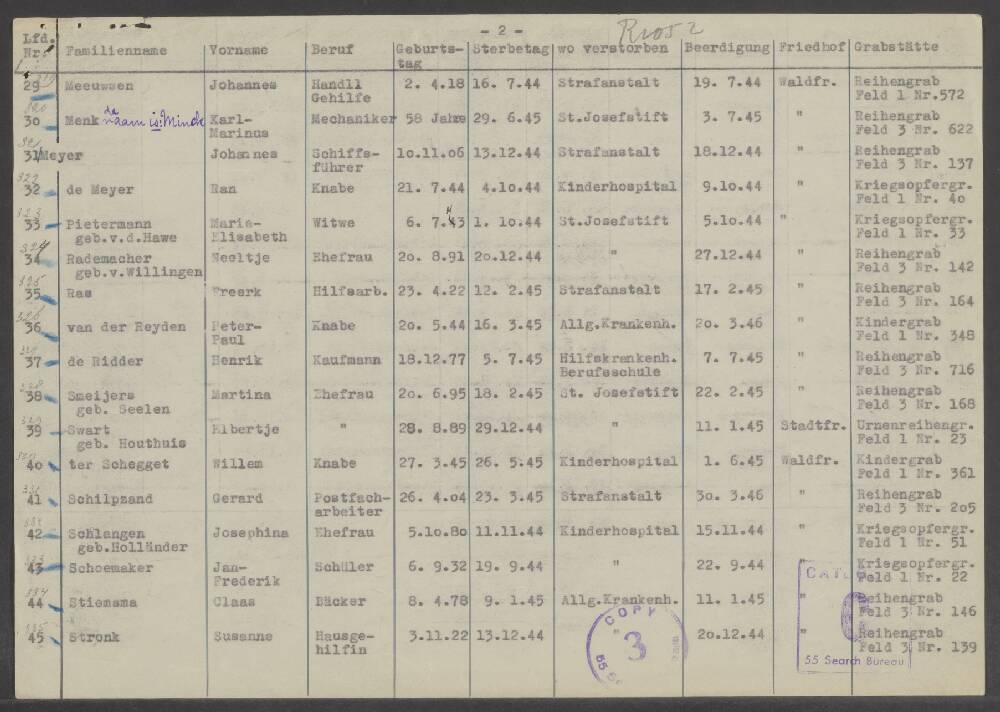 - 2 -
Lfd. Nr. Familienname Vorname Beruf Geburts- Sterbetag wo verstorben Beerdigung Friedhof Grabstätte
tag
29 Meeuwsen Johannes Handll 2. 4.18 16. 7.44 Strafanstalt 19. 7.44 Waldfr. Reihengrab
Gehilfe Feld 1 Nr.572
30 Menk de naam is: Minck Karl- Mechaniker 58 Jahre 29. 6.45 St.Josefstift 3. 7.45 " Reihengrab
Marinus Feld 3 Nr. 622
31 Meyer Johannes Schiffs- 10.11.06 13.12.44 Strafanstalt 18.12.44 " Reihengrab
führer Feld 3 Nr. 137
322
32 de Meyer Ran Knabe 21. 7.44 4.10.44 Kinderhospital 9.10.44 " Kriegsopfergr.
Feld 1 Nr. 40
323
33 Pietermann Maria- Witwe 6. 7. 43 1. 10.44 St.Josefstift 5.10.44 " Kriegsopfergr.
geb.v.d.Hawe Elisabeth Feld 1 Nr. 33
324
34 Rademacher Neeltje Ehefrau 20. 8.91 20.12.44 " 27.12.44 " Reihengrab
geb.v.Willingen Feld 3 Nr. 142
325
35 Ras Freerk Hilfsarb. 23. 4.22 12. 2.45 Strafanstalt 17. 2.45 " Reihengrab
Feld 3 Nr. 164
326
36 van der Reyden Peter- Knabe 20. 5.44 16. 3.45 Allg.Krankenh. 20. 3.46 " Kindergrab
Paul Feld 1 Nr. 348
37 de Ridder Henrik Kaufmann 18.12.77 5. 7.45 Hilfskrankenh. 7. 7.45 " Reihengrab
Berufsschule Feld 3 Nr. 716
38 Smeijers Martina Ehefrau 20. 6.95 18. 2.45 St. Josefstift 22. 2.45 " Reihengrab
geb. Seelen Feld 3 Nr. 168
39 Swart Elbertje " 28. 8.89 29.12.44 " 11. 1.45 Stadtfr. Urnenreihengr.
geb. Houthuis Feld 1 Nr. 23
40 ter Schegget Willem Knabe 27. 3.45 26. 5.45 Kinderhospital 1. 6.45 Waldfr. Kindergrab
Feld 1 Nr. 361
41 Schilpzand Gerard Postfach- 26. 4.04 23. 3.45 Strafanstalt 30. 3.46 " Reihengrab
arbeiter Feld 3 Nr. 205
42 Schlangen Josephina Ehefrau 5.10.80 11.11.44 Kinderhospital 15.11.44 " Kriegsopfergr.
geb.Holländer Feld 1 Nr. 51
43 Schoemaker Jan- Schüler 6. 9.32 19. 9.44 " 22. 9.44 " Kriegsopfergr.
Frederik Feld 1 Nr. 22
44 Stiemsma Claas Bäcker 8. 4.78 9. 1.45 Allg.Krankenh. 11. 1.45 " Reihengrab
Feld 3 Nr. 146
45 Stronk Susanne Hausge- 3.11.22 13.12.44 " 20.12.44 " Reihengrab
hilfin Feld 3 Nr. 139
COPY
3
55 Search Bureau